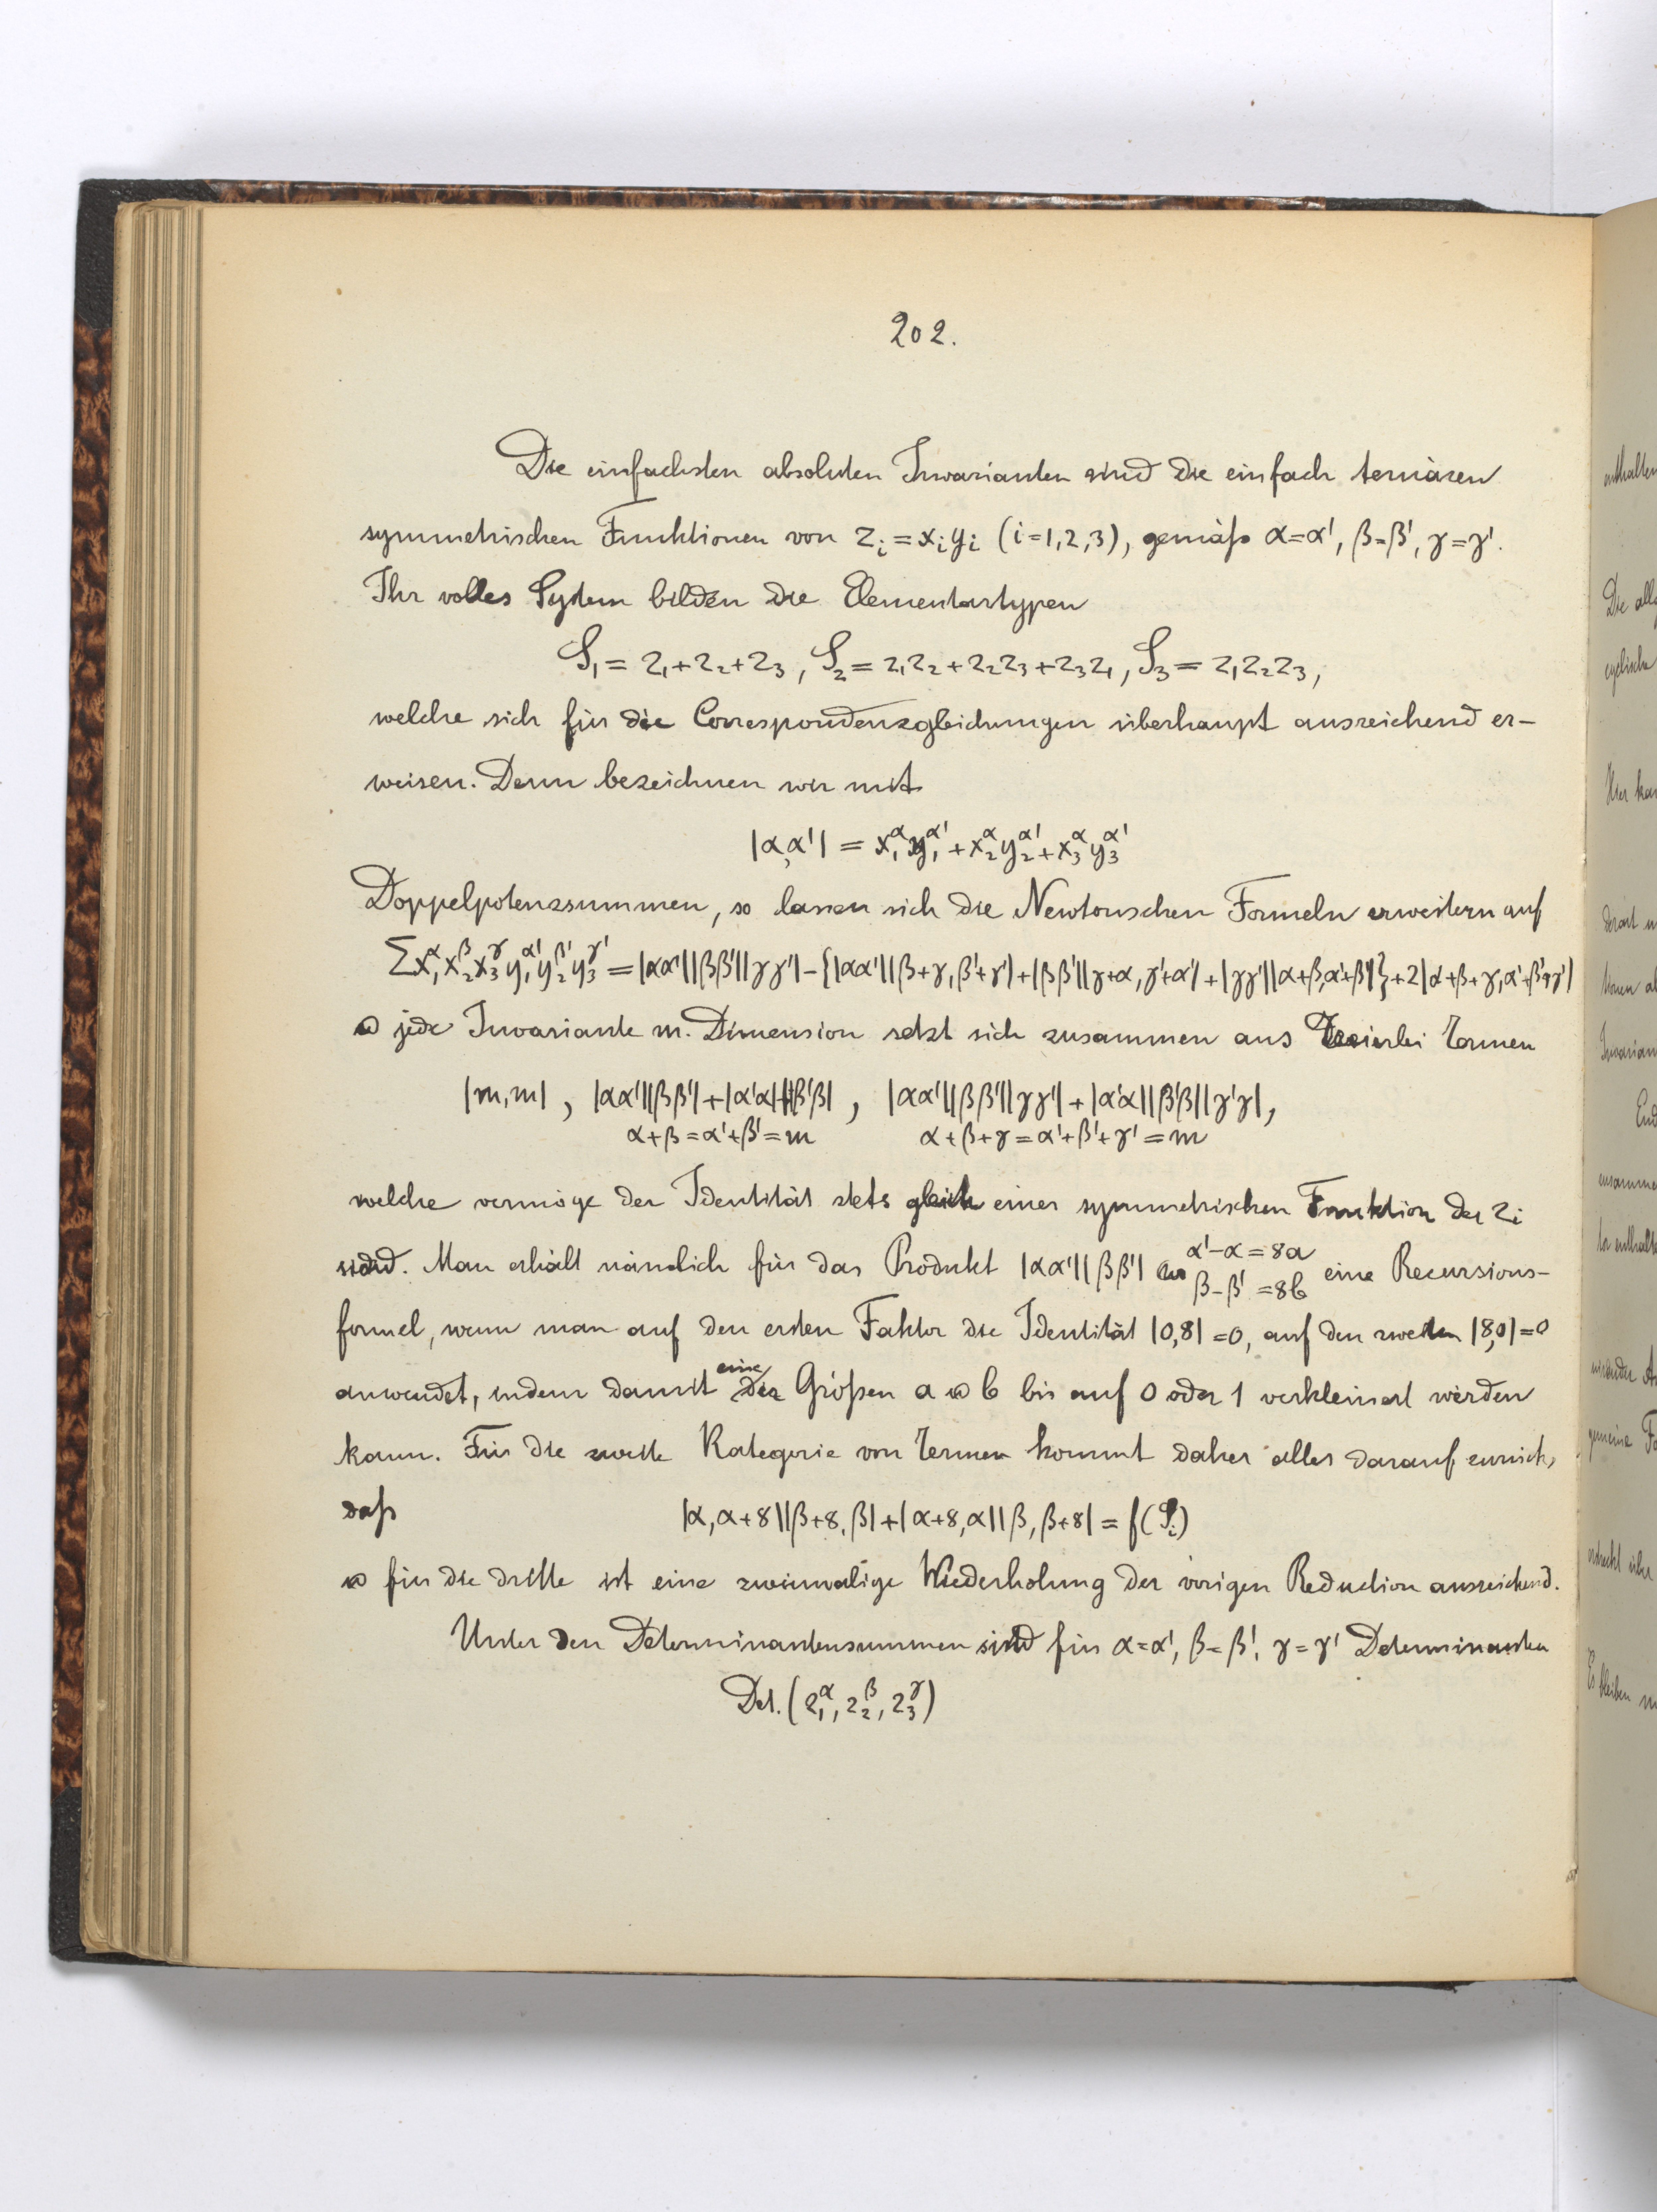 202.
Die einfachsten absoluten Invarianten sind die einfach ternären
symmetrischen Funktionen von z_i = x_i y_i (i=1,2,3), gemäß α=α', β=β', γ=γ'.
Ihr volles System bilden die Elementartypen
S_1 = z_1+z_2+z_3, S_2 = z_1z_2+z_2z_3+z_3z_1, S_3 = z_1z_2z_3,
welche sich für die Correspondenzgleichungen überhaupt ausreichend er-
weisen. Denn bezeichnen wir mit
|α,α'| = x_1^α y_1^α' + x_2^α y_2^α' + x_3^α y_3^α'
Doppelpotenzsummen, so lassen sich die Newtonschen Formeln erweitern auf
Σx_1^α x_2^β x_3^γ y_1^α' y_2^β' y_3^γ' = |αα'||ββ'||γγ'| - {|αα'||β+γ,β'+γ'|+|ββ'||γ+α,γ'+α'|+|γγ'||α+β,α'+β'|}+2|α+β+γ,α'+β'+γ'|
jede Invariante m. Dimension setzt sich zusammen aus dreierlei Termen
|m,m| , |αα'||ββ'|+|α'α||β'β| , |αα'||ββ'||γγ'|+|α'α||β'β||γ'γ|,
α+β=α'+β'=m α+β+γ=α'+β'+γ'=m
welche vermöge der Identität stets gleich einer symmetrischen Funktion der z_i
sind. Man erhält nämlich für das Produkt |αα'||ββ'| wo α'-α=8a β-β'=8b eine Recursions-
formel, wenn man auf den ersten Faktor die Identität |0,8|=0, auf den zweiten |8,0|=0
anwendet, indem damit eine der Größen a b bis auf 0 oder 1 verkleinert werden
kann. Für die zweite Kategorie von Termen kommt daher alles darauf zurück,
daß |α,α+8||β+8,β|+|α+8,α||β,β+8| = f(S_i)
für die dritte ist eine zweimalige Wiederholung der vorigen Reduction ausreichend.
Unter den Determinantensummen sind für α=α', β=β', γ=γ' Determinanten
Det.(z_1^α, z_2^β, z_3^γ)